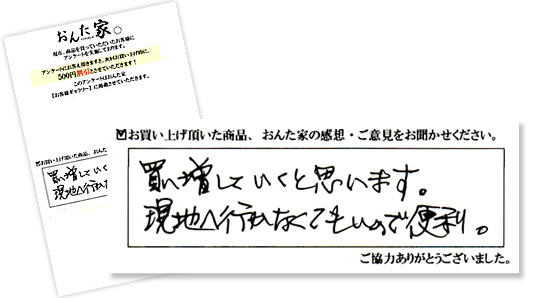 おんた家。
現在、商品を買っていただいたお客様に
アンケートを実施しております。
アンケートにお答え頂きますと、次回お買い上げ時に、
500円割引とさせていただきます！
このアンケートはおんた家
【お客様ギャラリー】に掲載させていただきます。
☑お買い上げ頂いた商品、おんた家の感想・ご意見をお聞かせください。
買い増していくと思います。
現地へ行かなくてもいいので便利。
ご協力ありがとうございました。